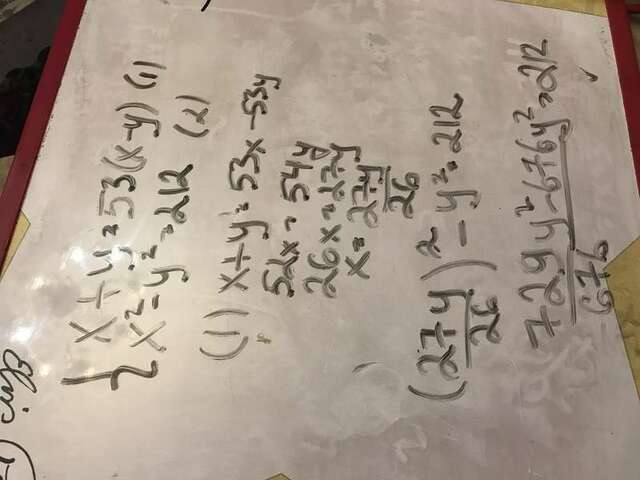 { x + y = 53(x-y) (1)
x² - y² = 212 (2)
(1) x + y = 53x - 53y
52x = 54y
26x = 27y
x = 27y/26
(27y/26)² - y² = 212
729y² - 676y²/676 = 212